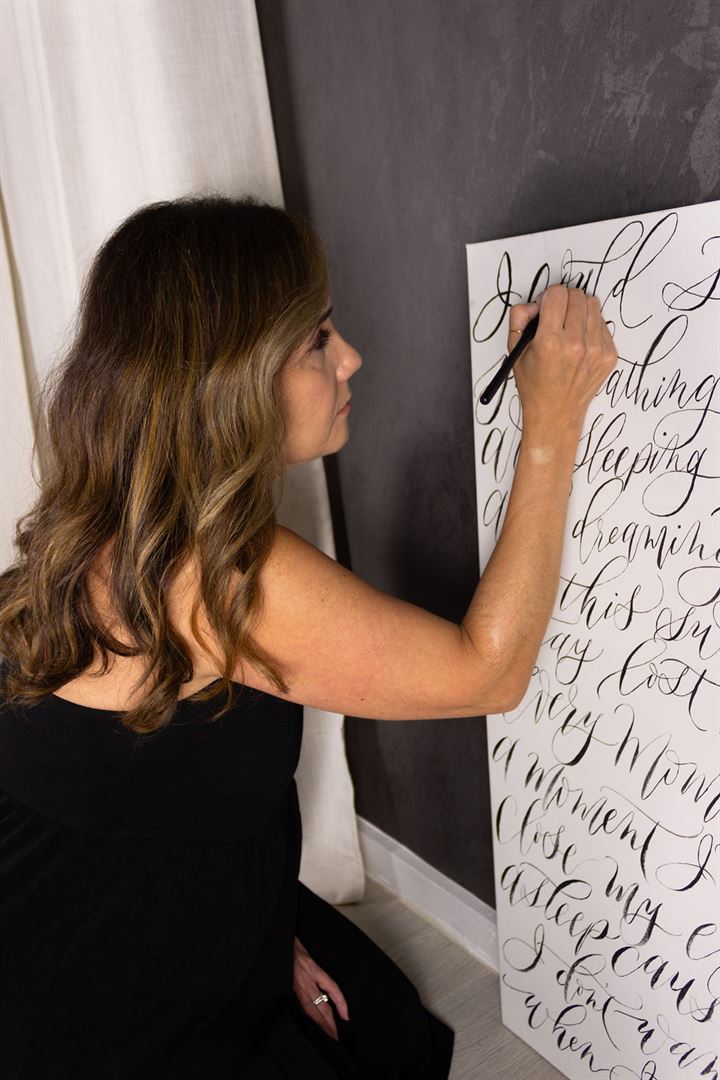 I could
athing
sleeping
dreaming
this su
ay lost
every Mom
a moment I
close my e
asleep caus
I don't wan
when I